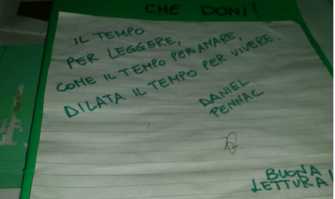 CHE DONI!
IL TEMPO
PER LEGGERE,
COME IL TEMPO PER AMARE,
DILATA IL TEMPO PER VIVERE.
DANIEL
PENNAC
BUONA
LETTURA!